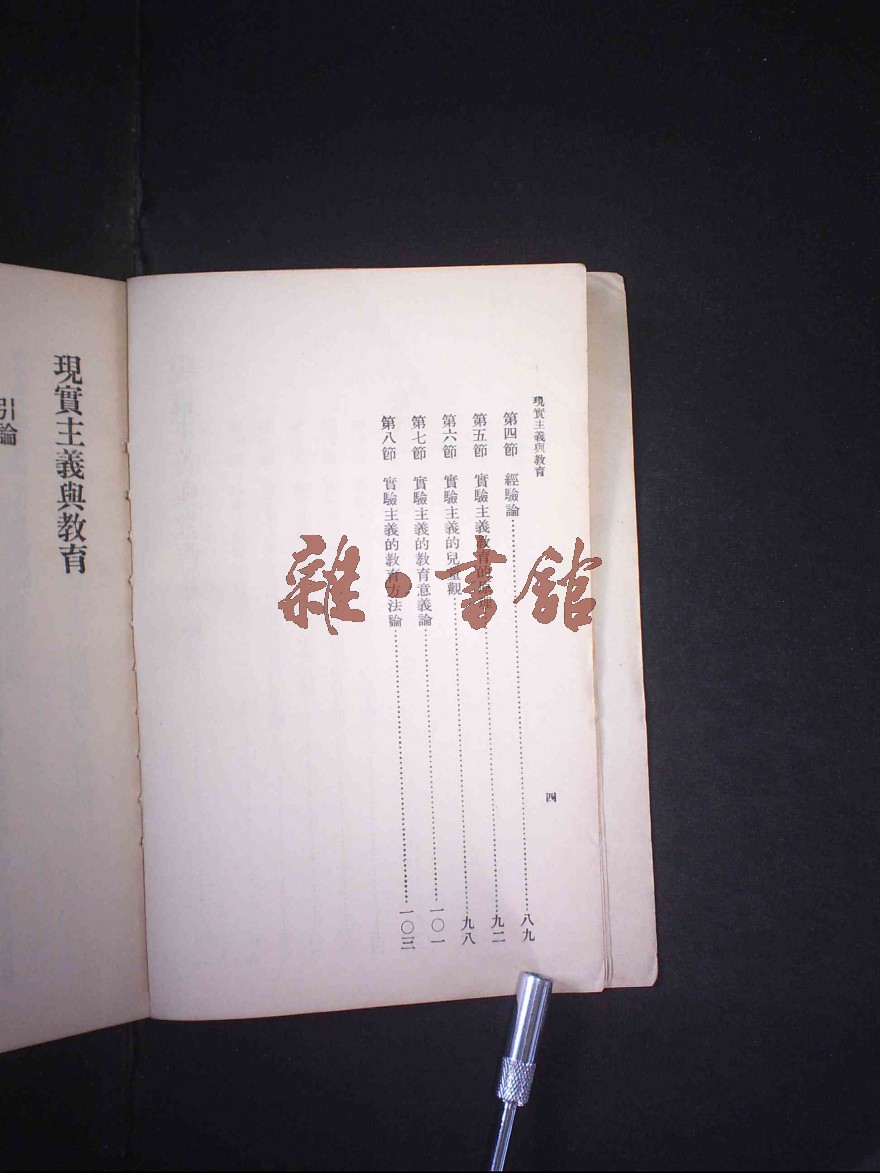 現實主義與教育
四
第四節 經驗論……八九
第五節 實驗主義教育的……九二
第六節 實驗主義的兒童觀……九八
第七節 實驗主義的教育意義論……一〇一
第八節 實驗主義的教育方法論……一〇三
現實主義與教育
引論
雜·書館